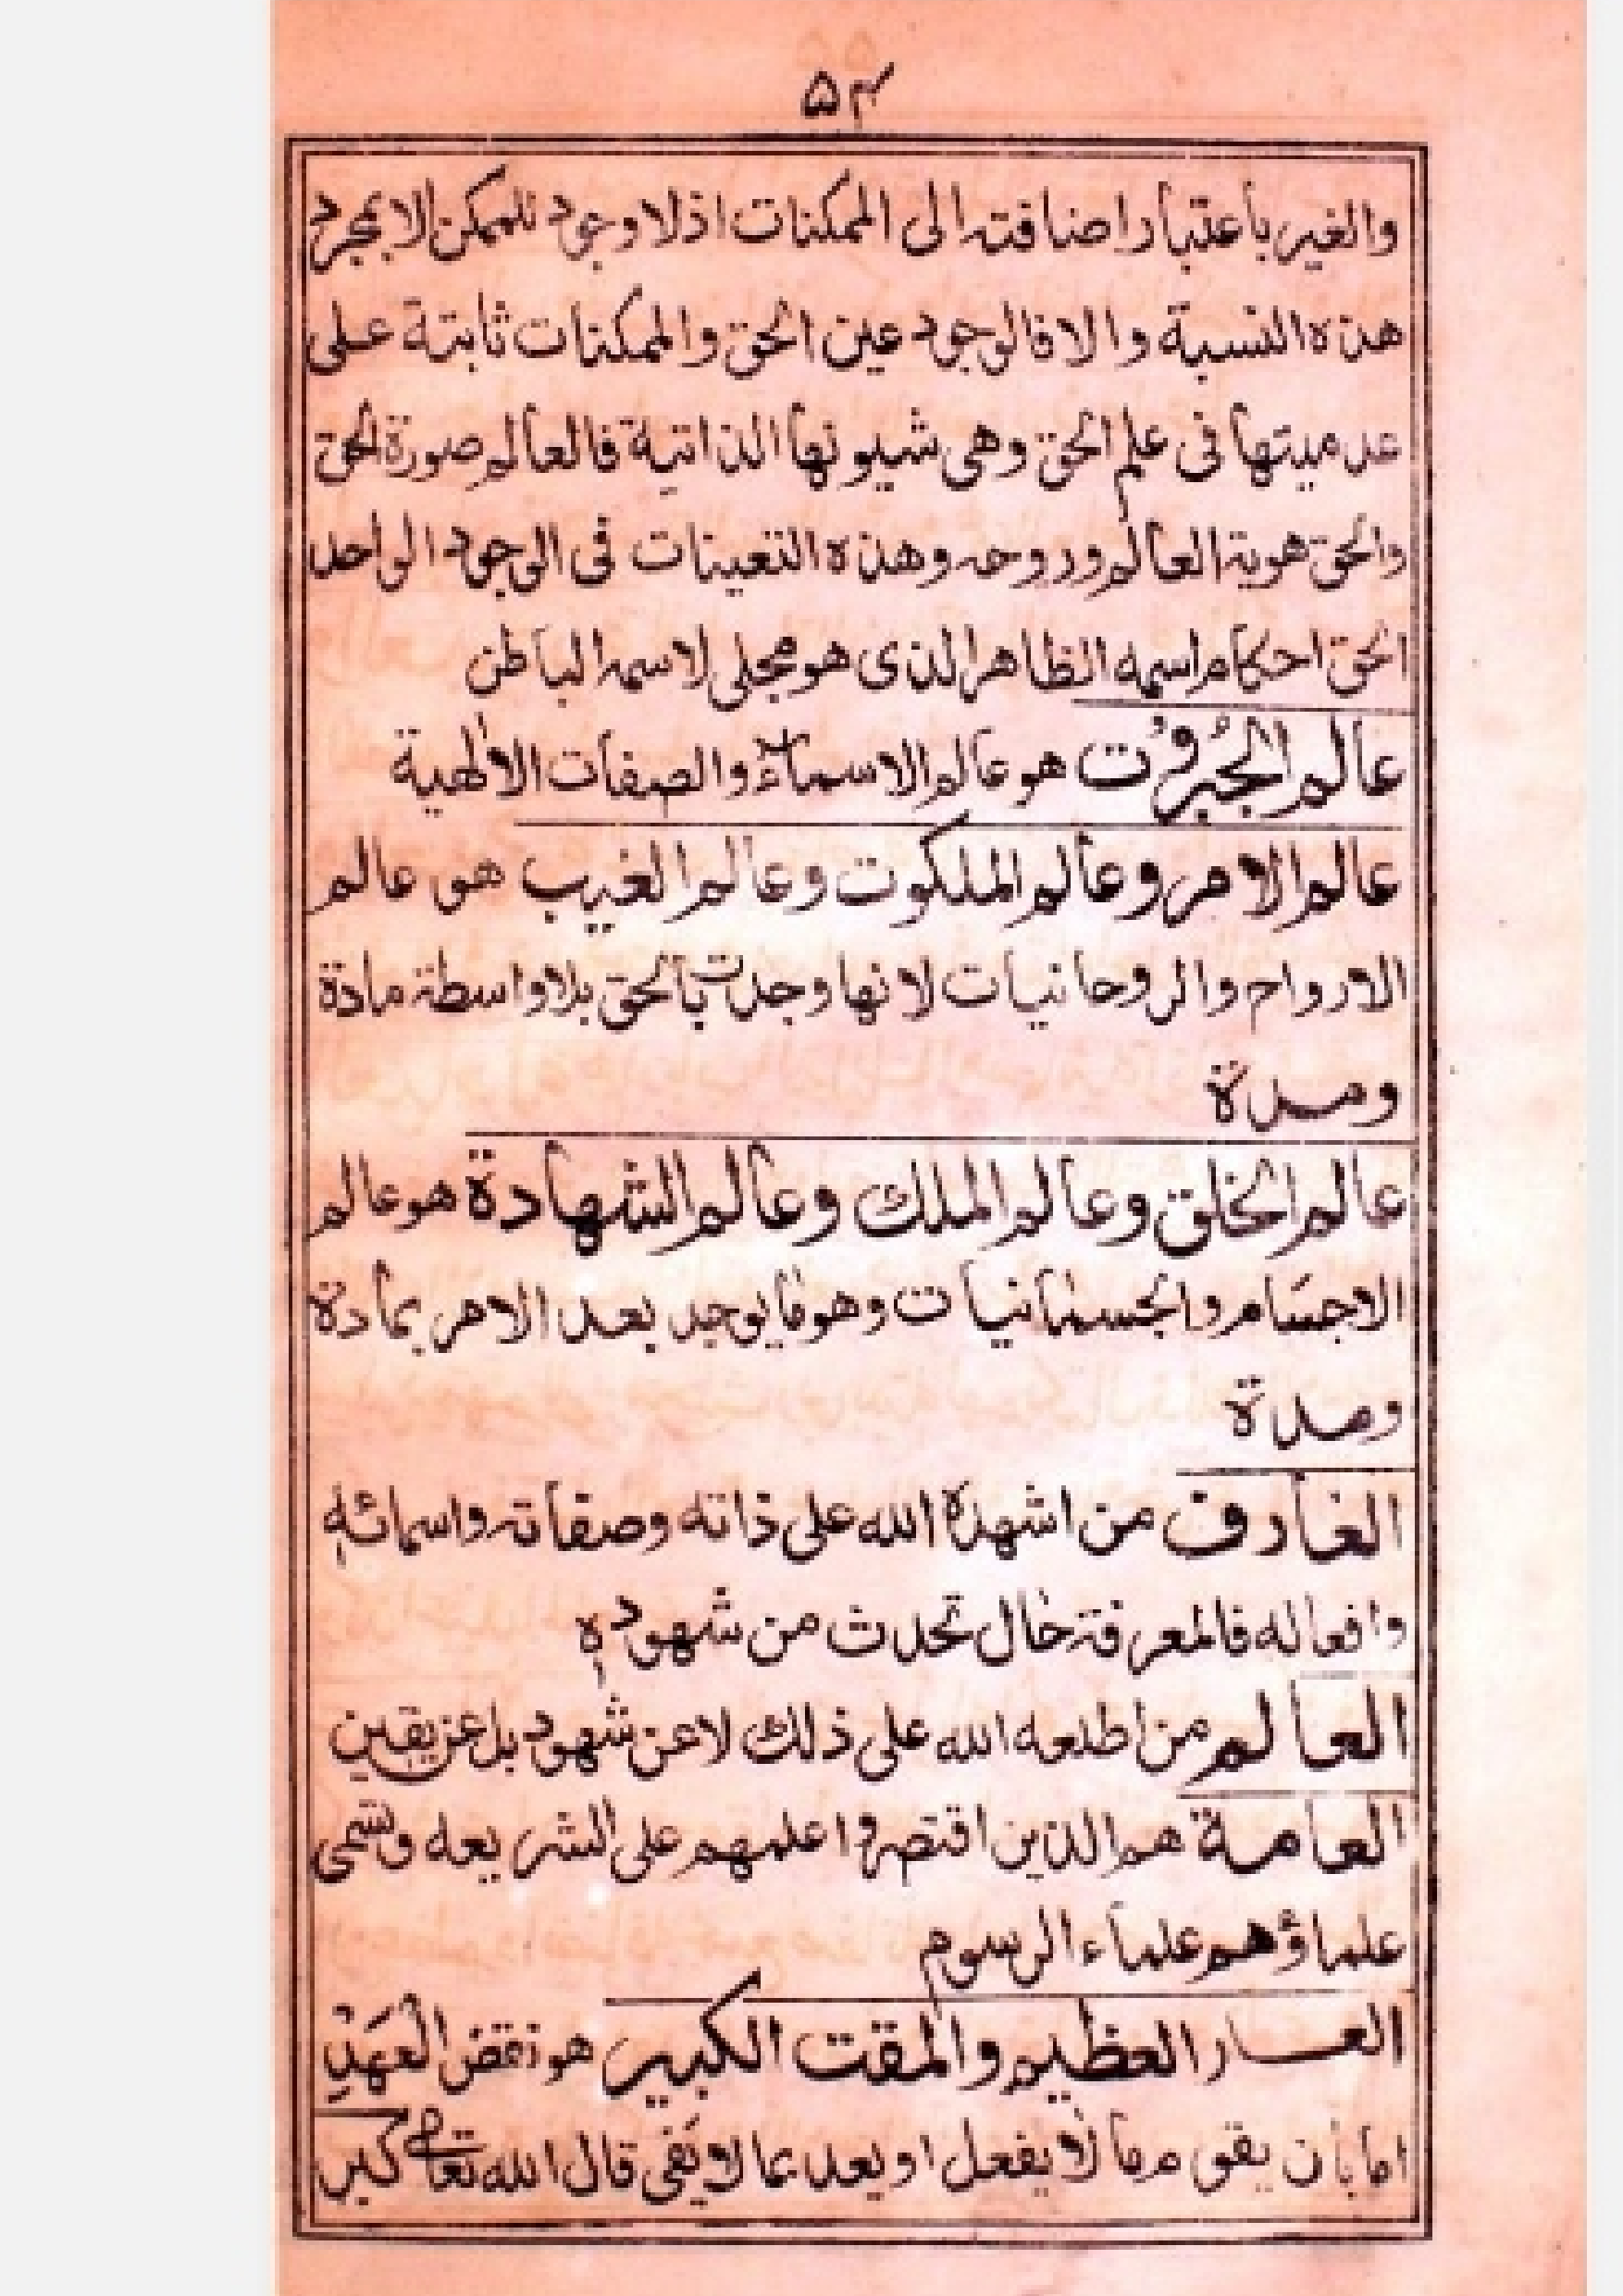 ۵۴
والغير باعتبار اضافته الى الممكنات اذ لا وجود للممكن الا بمجرد
هذه النسبة والا فالوجود عين الحق والممكنات ثابتة على
عدميتها فى علم الحق وهى شيونها الذاتية فالعالم صورة الحق
والحق هوية العالم وروحه وهذه التعينات فى الوجود الواحد
الحق احكام اسمه الظاهر الذى هو مجلى لاسمه الباطن
عالم الجبروت هو عالم الاسماء والصفات الالهية
عالم الامر وعالم الملكوت وعالم الغيب هو عالم
الارواح والروحانيات لانها وجدت بالحق بلا واسطة مادة
ومدة
عالم الخلق وعالم الملك وعالم الشهادة هو عالم
الاجسام والجسمانيات وهو ما يوجد بعد الامر بمادة
ومدة
العارف من اشهده الله على ذاته وصفاته واسمائه
وافعاله فالمعرفة حال تحدث من شهوده
العالم من اطلعه الله على ذلك لا عن شهود بل عن يقين
العامة هم الذين اقتصروا علمهم على الشريعه وتسمى
علماؤهم علماء الرسوم
العار العظيم والمقت الكبير هو نقض العهد
اما بان يقو م ما لا يفعل او يعد بما لا يفى قال الله تعالى كبر